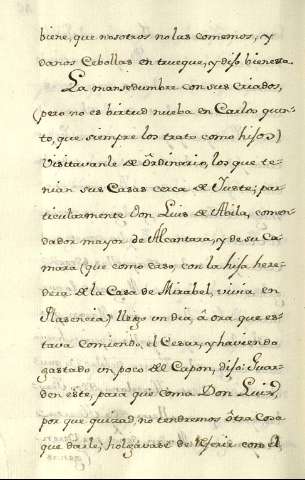 biene, que nosotros no las comemos, y
danos Cebollas en trueque, y dijo bien esta.
La mansedumbre con sus criados,
(pero no es birtud nueba en Carlos quin-
to, que siempre los trato como hijos)
Visitavanle de Ordinario, los que te-
nian sus Casas cerca de Yuste; par-
ticularmente Don Luis de Abila, comen-
dador mayor de Alcantara, y de su Ca-
mara (que como caso, con la hija here-
dera de la Casa de Mirabel, vivia en
Plasencia) llego un dia, â ora que es-
tava comiendo, el Cesar, y haviendo
gastado un poco de Capon, dijo: Guar-
den este, para que coma Don Luis,
por que quizas, no tendremos ôtra cosa
que darle; holgavase de referir con el